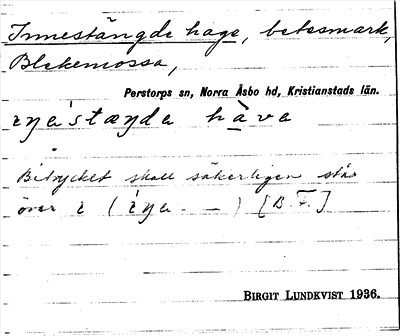 Innestängde hage, betesmark,
Blekemossa,
Perstorps sn, Norra Åsbo hd, Kristianstads län.
iŋastæŋda hàva
Bitrycket skall säkerligen stå
över i (íŋa- —) [B.F.]
BIRGIT LUNDKVIST 1936.